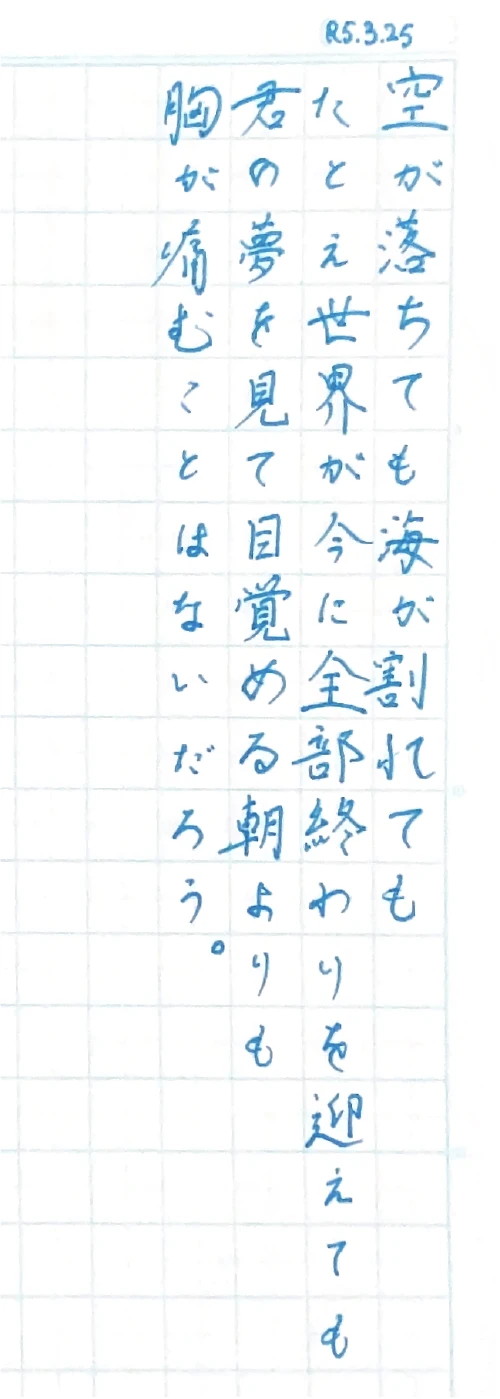 R5.3.25
空が落ちても海が割れても
たとえ世界が今に全部終わりを迎えても
君の夢を見て目覚める朝よりも
胸が痛むことはないだろう。